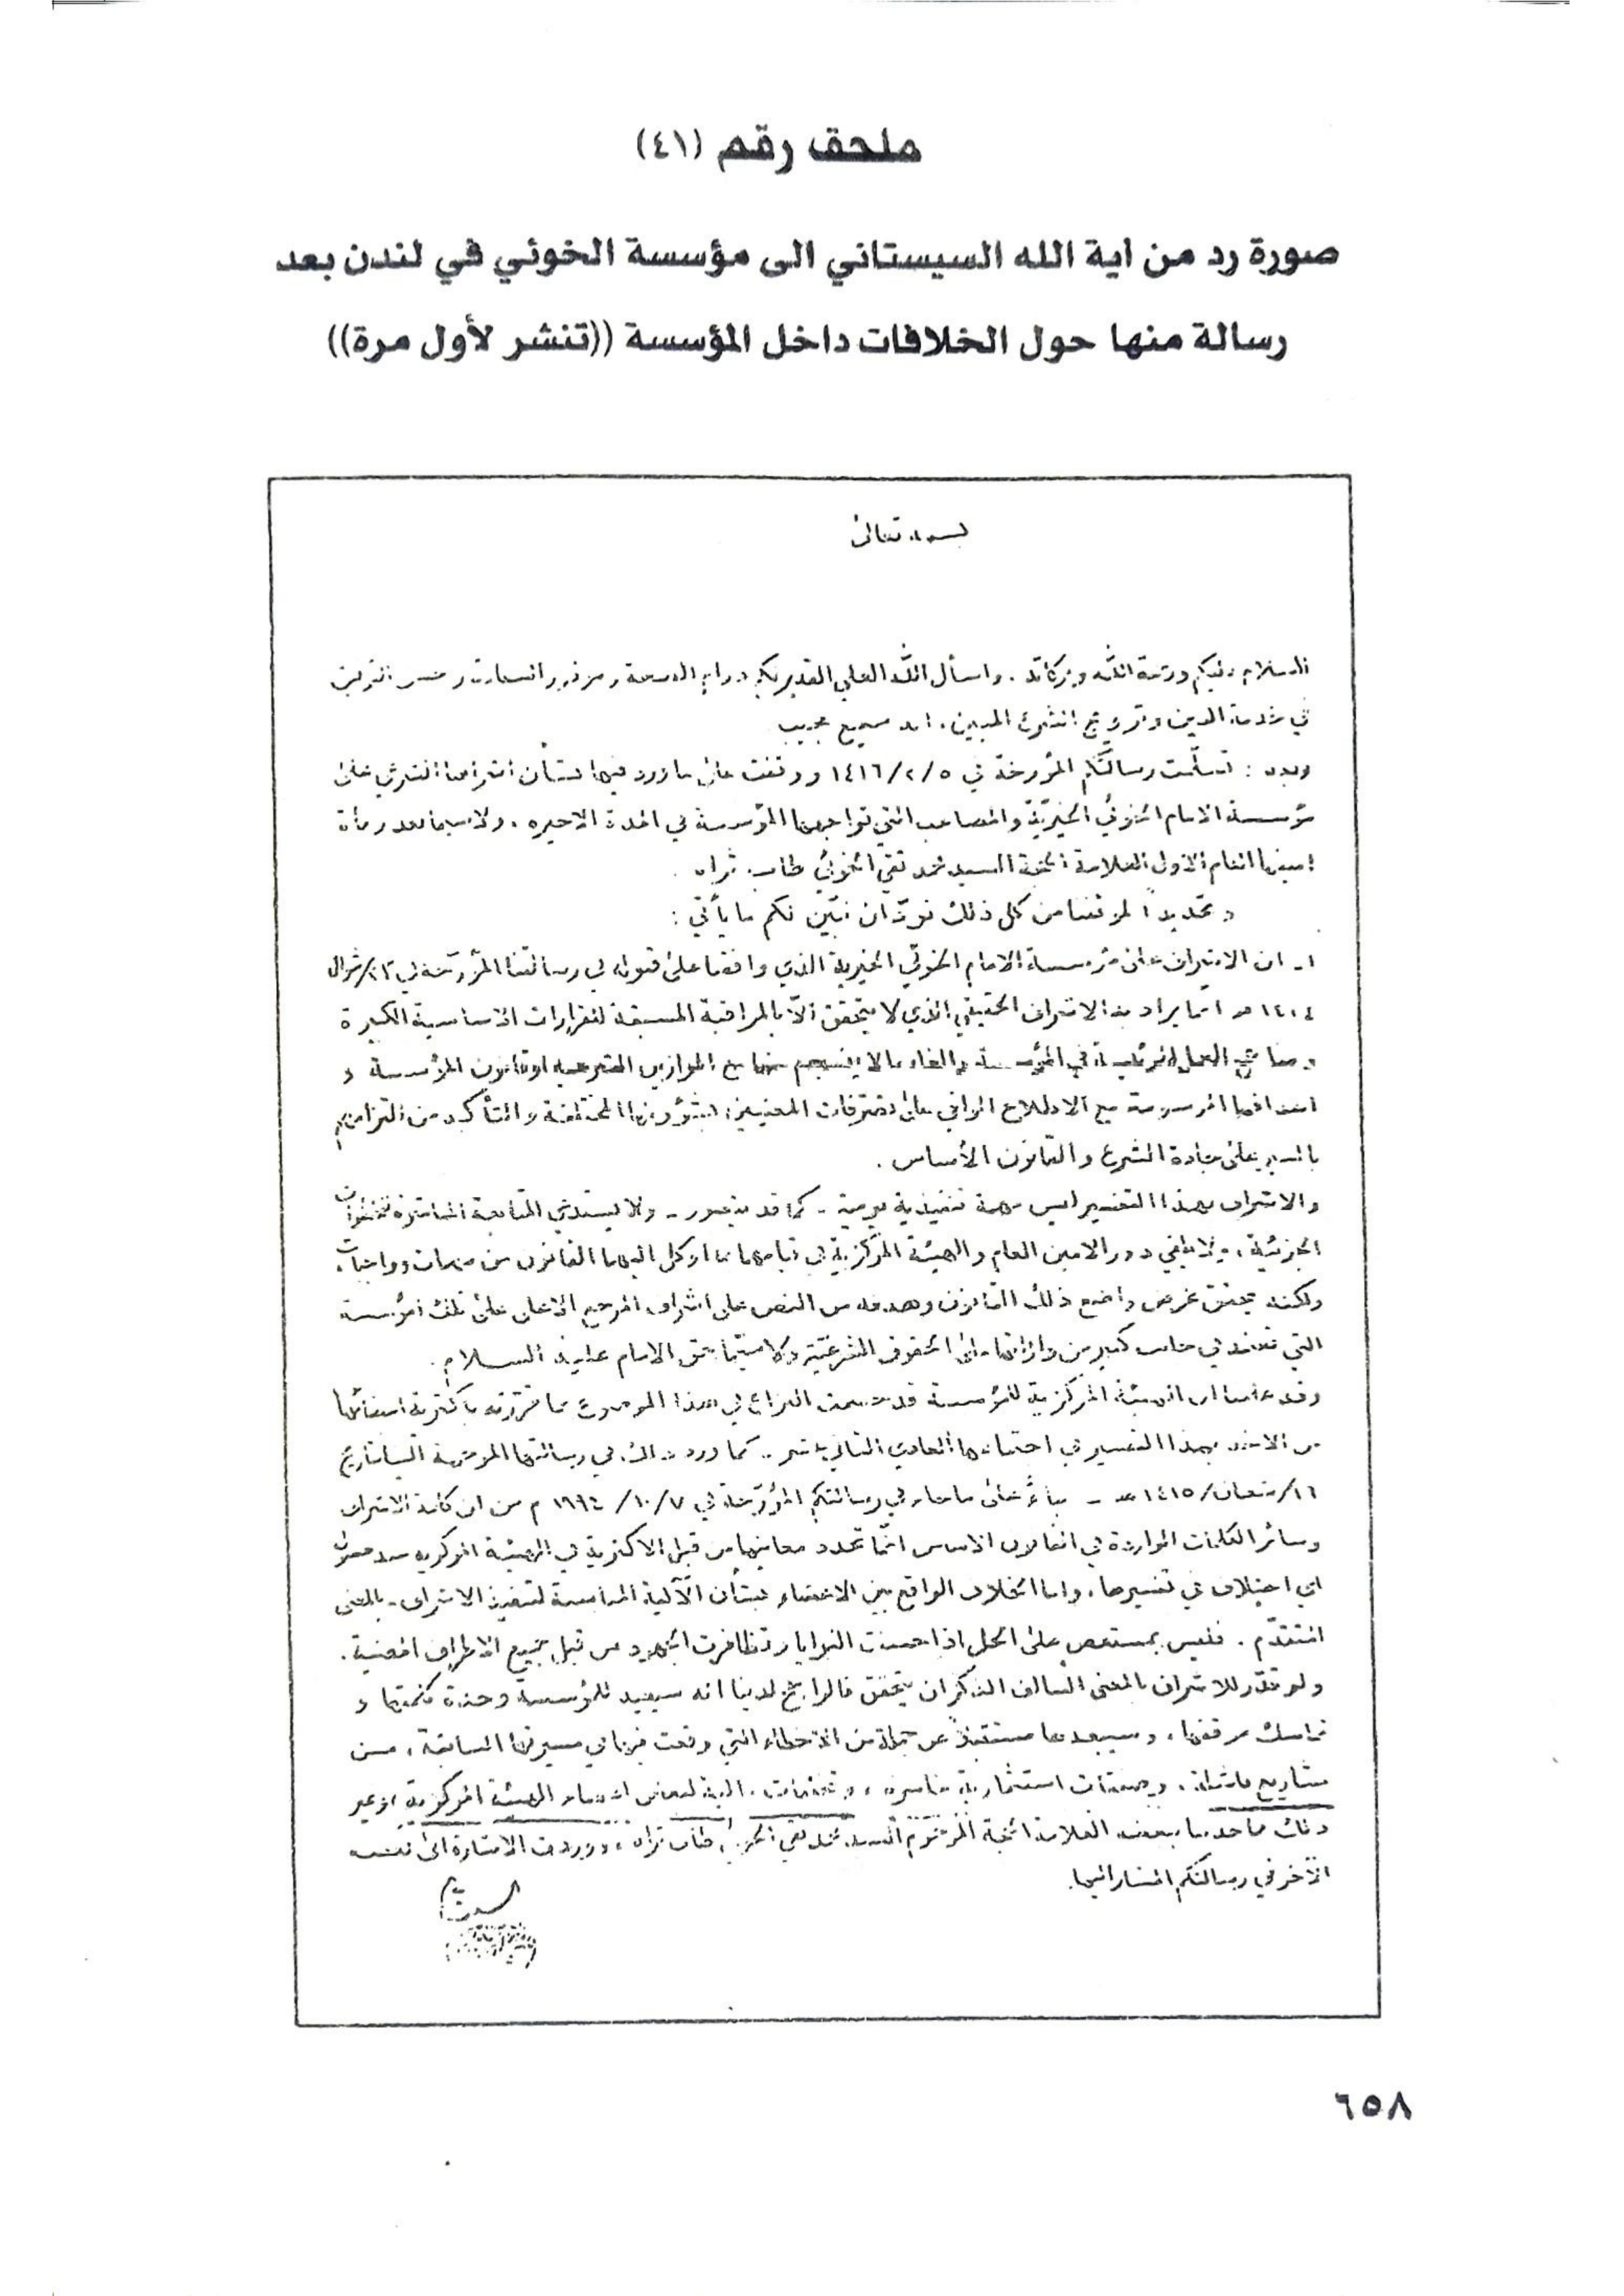 ملحق رقم (٤١)
صورة رد من اية الله السيستاني الى مؤسسة الخوئي في لندن بعد
رسالة منها حول الخلافات داخل المؤسسة ((تنشر لأول مرة))
بسمه تعالى
السلام عليكم ورحمة الله وبركاته . واسأل الله العلي القدير لكم دوام الصحة والسعادة وحسن التوفيق
في خدمة الدين وترويج الشرع المبين . انه سميع مجيب
وبعد : تسلّمت رسالتكم المؤرخة في ١٤١٦/٢/٥ ووقفت على ما ورد فيها بشأن اشرافنا الشرعي على
مؤسسة الامام الخوئي الخيريّة والمصاعب التي تواجهها المؤسسة في المدة الاخيره . ولا سيما بعد وفاة
امينها العام الاول العلامة الحجة السيد محمد تقي الخوئي طاب ثراه .
وتحديداً لموقفنا من كل ذلك نودّ ان نبيّن لكم ما يأتي :
١ـ ان الاشراف على مؤسسة الامام الخوئي الخيرية الذي وافقنا على قبوله في رسالتنا المؤرخة في /شوال
١٤١٤ هـ انما يراد به الاشراف الحقيقي الذي لا يتحقق الاّ بالمراقبة المسبقة للقرارات الاساسية الكبيرة
ومناهج العمل الرئيسية في المؤسسة والغاء ما لا ينسجم منها مع الموازين الشرعيه او قانون المؤسسة و
اهدافها المرسومة مع الاطلاع الوافي على تصرفات المعنيين بشؤونها المختلفة والتأكد من التزامهم
بالسير على جادة الشرع والقانون الأساس .
والاشراف بهذا التفسير ليس مهمة تنفيذية يومية - كما قد يتصور - ولا يستدعي المتابعة المباشرة للخطوات
الجزئية ، ولا يلغي دور الامين العام والهيئة المركزية في قيامهما بما اوكل اليهما القانون من مهمات وواجبات ،
ولكنه يحقق غرض واضع ذلك القانون وهدفه من النص على اشراف المرجع الاعلى على تلك المؤسسة
التي تعتمد في جانب كبير من وارداتها على الحقوق الشرعيّة ولا سيّما حق الامام عليه السلام .
وقد علمنا ان الهيئة المركزية للمؤسسة قد حسمت النزاع في هذا الموضوع بما قررته باكثرية اعضائها
من الاخذ بهذا التفسير في اجتماعها العادي الثاني عشر - كما ورد ذلك في رسالتها الموجهة الينا بتاريخ
١٦/شعبان/١٤١٥ هـ - بناءً على ما جاء في رسالتكم المؤرّخة في ١٩٩٤/١٠/٧ م من ان كلمة الاشراف
وسائر الكلمات الواردة في القانون الاساس انمّا تحدد معانيها من قبل الاكثرية في الهيئة المركزيه عند حصول
اي اختلاف في تفسيرها ، واما الخلاف الواقع بين الاعضاء بشأن الآلية المناسبة لتنفيذ الاشراف - بالمعنى
المتقدّم . فليس بمستعص على الحل اذا حسنت النوايا وتظافرت الجهود من قبل جميع الاطراف المعنية .
ولو قدّر للاشراف بالمعنى السالف الذكر ان يتحقق فالراجح لدينا انه سيعيد للمؤسسة وحدة كلمتها و
تماسك موقفها ، وسيبعدها مستقبلاً عن جملة من الاخطاء التي وقعت فيها في مسيرتها السابقة ، من
مشاريع فاشلة ، وصفقات استثمارية خاسره ، لبعض اعضاء الهيئة المركزية وغير
ذلك مما حدثنا ببعضه العلامة الحجة المرحوم السيد محمد تقي الخوئي طاب ثراه ، ووردت الاشارة الى بعضه
الآخر في رسالتكم المشار اليها.
٦٥٨